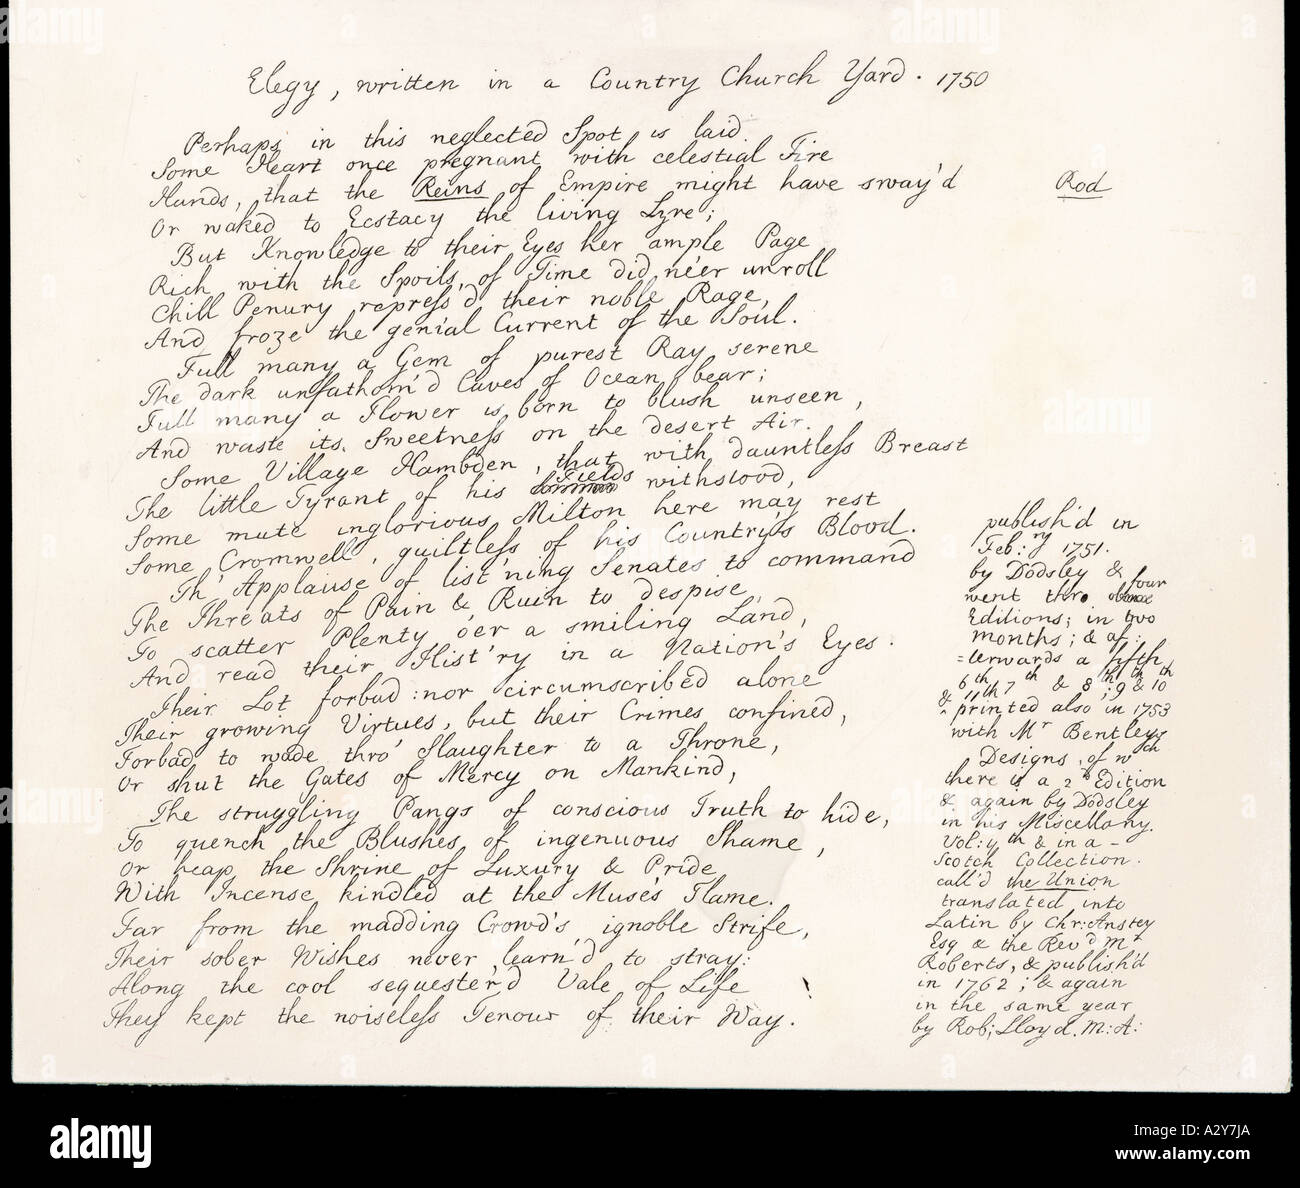 Elegy, written in a Country Church Yard. 1750
Perhaps in this neglected Spot is laid
Some Heart once pregnant with celestial Fire
Hands, that the Reins of Empire might have sway'd
Rod
Or waked to Ecstacy the living Lyre;
But Knowledge to their Eyes her ample Page
Rich with the Spoils of Time did ne'er unroll
Chill Penury repress'd their noble Rage,
And froze the genial Current of the Soul.
Full many a Gem of purest Ray serene
The dark unfathom'd Caves of Ocean bear;
Full many a Flower is born to blush unseen,
And waste its Sweetness on the desert Air.
Some Village Hambden, that with dauntless Breast
The little Tyrant of his Fields withstood,
Some mute inglorious Milton here may rest
Some Cromwell, guiltless of his Country's Blood.
Th' Applause of list'ning Senates to command
The Threats of Pain & Ruin to despise,
To scatter Plenty o'er a smiling Land,
And read their Hist'ry in a Nation's Eyes.
Their Lot forbad: nor circumscribed alone
Their growing Virtues, but their Crimes confined,
Forbad to wade thro' Slaughter to a Throne,
Or shut the Gates of Mercy on Mankind,
The struggling Pangs of conscious Truth to hide,
To quench the Blushes of ingenuous Shame,
Or heap the Shrine of Luxury & Pride
With Incense kindled at the Muse's Flame.
Far from the madding Crowd's ignoble Strife,
Their sober Wishes never learn'd to stray:
Along the cool sequester'd Vale of Life
They kept the noiseless Tenour of their Way.
publish'd in
Feb:ry 1751.
by Dodsley &
went thro four
Editions; in two
months; & af:
=terwards a fifth
6th 7th & 8th; 9th & 10th
& 11th
printed also in 1753
with Mr Bentley's
Designs, of wch
there is a 2d Edition
& again by Dodsley
in his Miscellany.
Vol: 4th & in a
Scotch Collection
call'd the Union
translated into
Latin by Chr: Anstey
Esq & the Revd Mr
Roberts, & publish'd
in 1762; & again
in the same year
by Rob: Lloyd. M: A:
alamy
Image ID: A2Y7JA
www.alamy.com